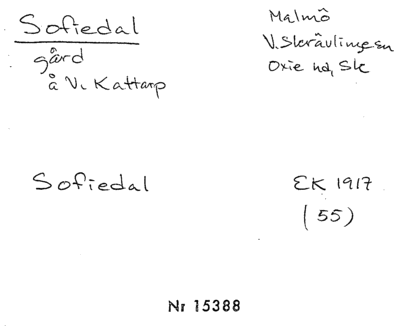 Sofiedal
gård
å V. Kattarp
Malmö
V. Skrävlinge sn
Oxie hd, Sk
Sofiedal
EK 1917
(55)
Nr 15388